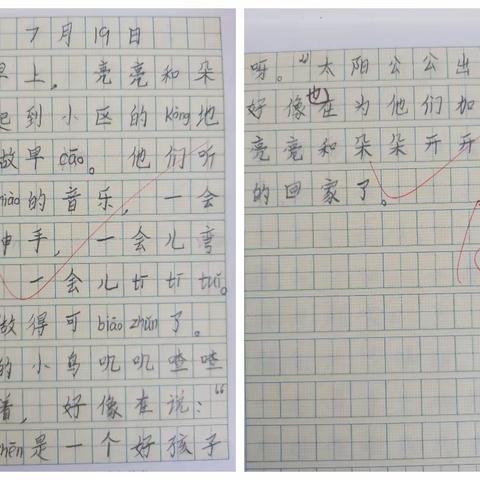 7月19日
早上，亮亮和朵
起到小区的kòng地
做早cāo。他们听
的音乐，一会
伸手，一会儿弯
一会儿tī tī tuǐ。
做得可biāo zhǔn了。
的小鸟叽叽喳喳
着，好像在说：“
zhēn是一个好孩子
呀。”太阳公公出
好像也在为他们加
亮亮和朵朵开开
的回家了。